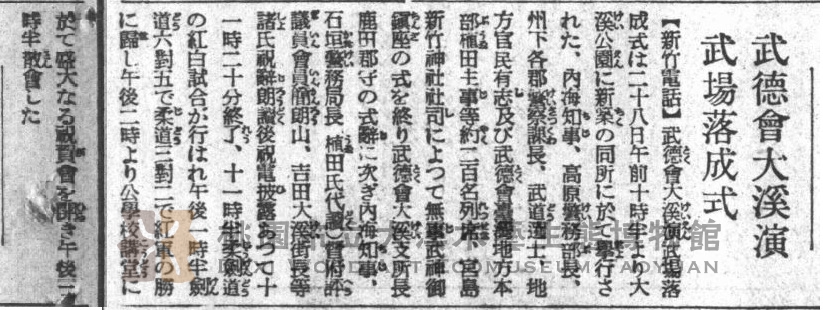 武德會大溪演
武場落成式
【新竹電話】武德會大溪演武場落
成式は二十八日午前十時半より大
溪公園に新築の同所に於て擧行さ
れた、內海知事、高原警務部長、
州下各郡警察課長、武道選士、地
方官民有志及び武德會臺灣地方本
部植田主事等約二百名列席、宮島
新竹神社社司によつて無事武神御
鎭座の式を終り武德會大溪支所長
鹿田郡守の式辭に次ぎ內海知事、
石垣警務局長(植田氏代讀)督府評
議員會員簡朗山、吉田大溪街長等
諸氏祝辭朗讀後祝電披露あつて十
一時二十分終了、十一時半柔劍道
の紅白試合が行はれ午後一時半劍
道六對五で柔道三對二で紅軍の勝
に歸し午後二時より公學校講堂に
於て盛大なる祝賀會を開き午後二
時半散會した
桃園市立大溪木藝生態博物館
DAXI WOOD ART ECOMUSEUM TAOYUAN